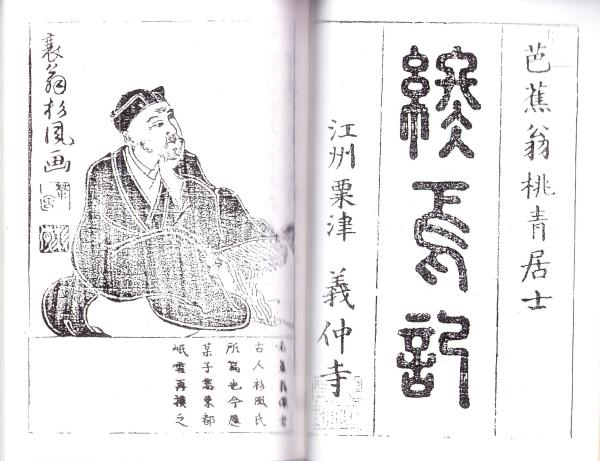 芭蕉翁桃青居士
終焉記
江州粟津 義仲寺
衰翁杉風画
古人杉風氏
所寫也今應
某子需東都
岷雪再摸之